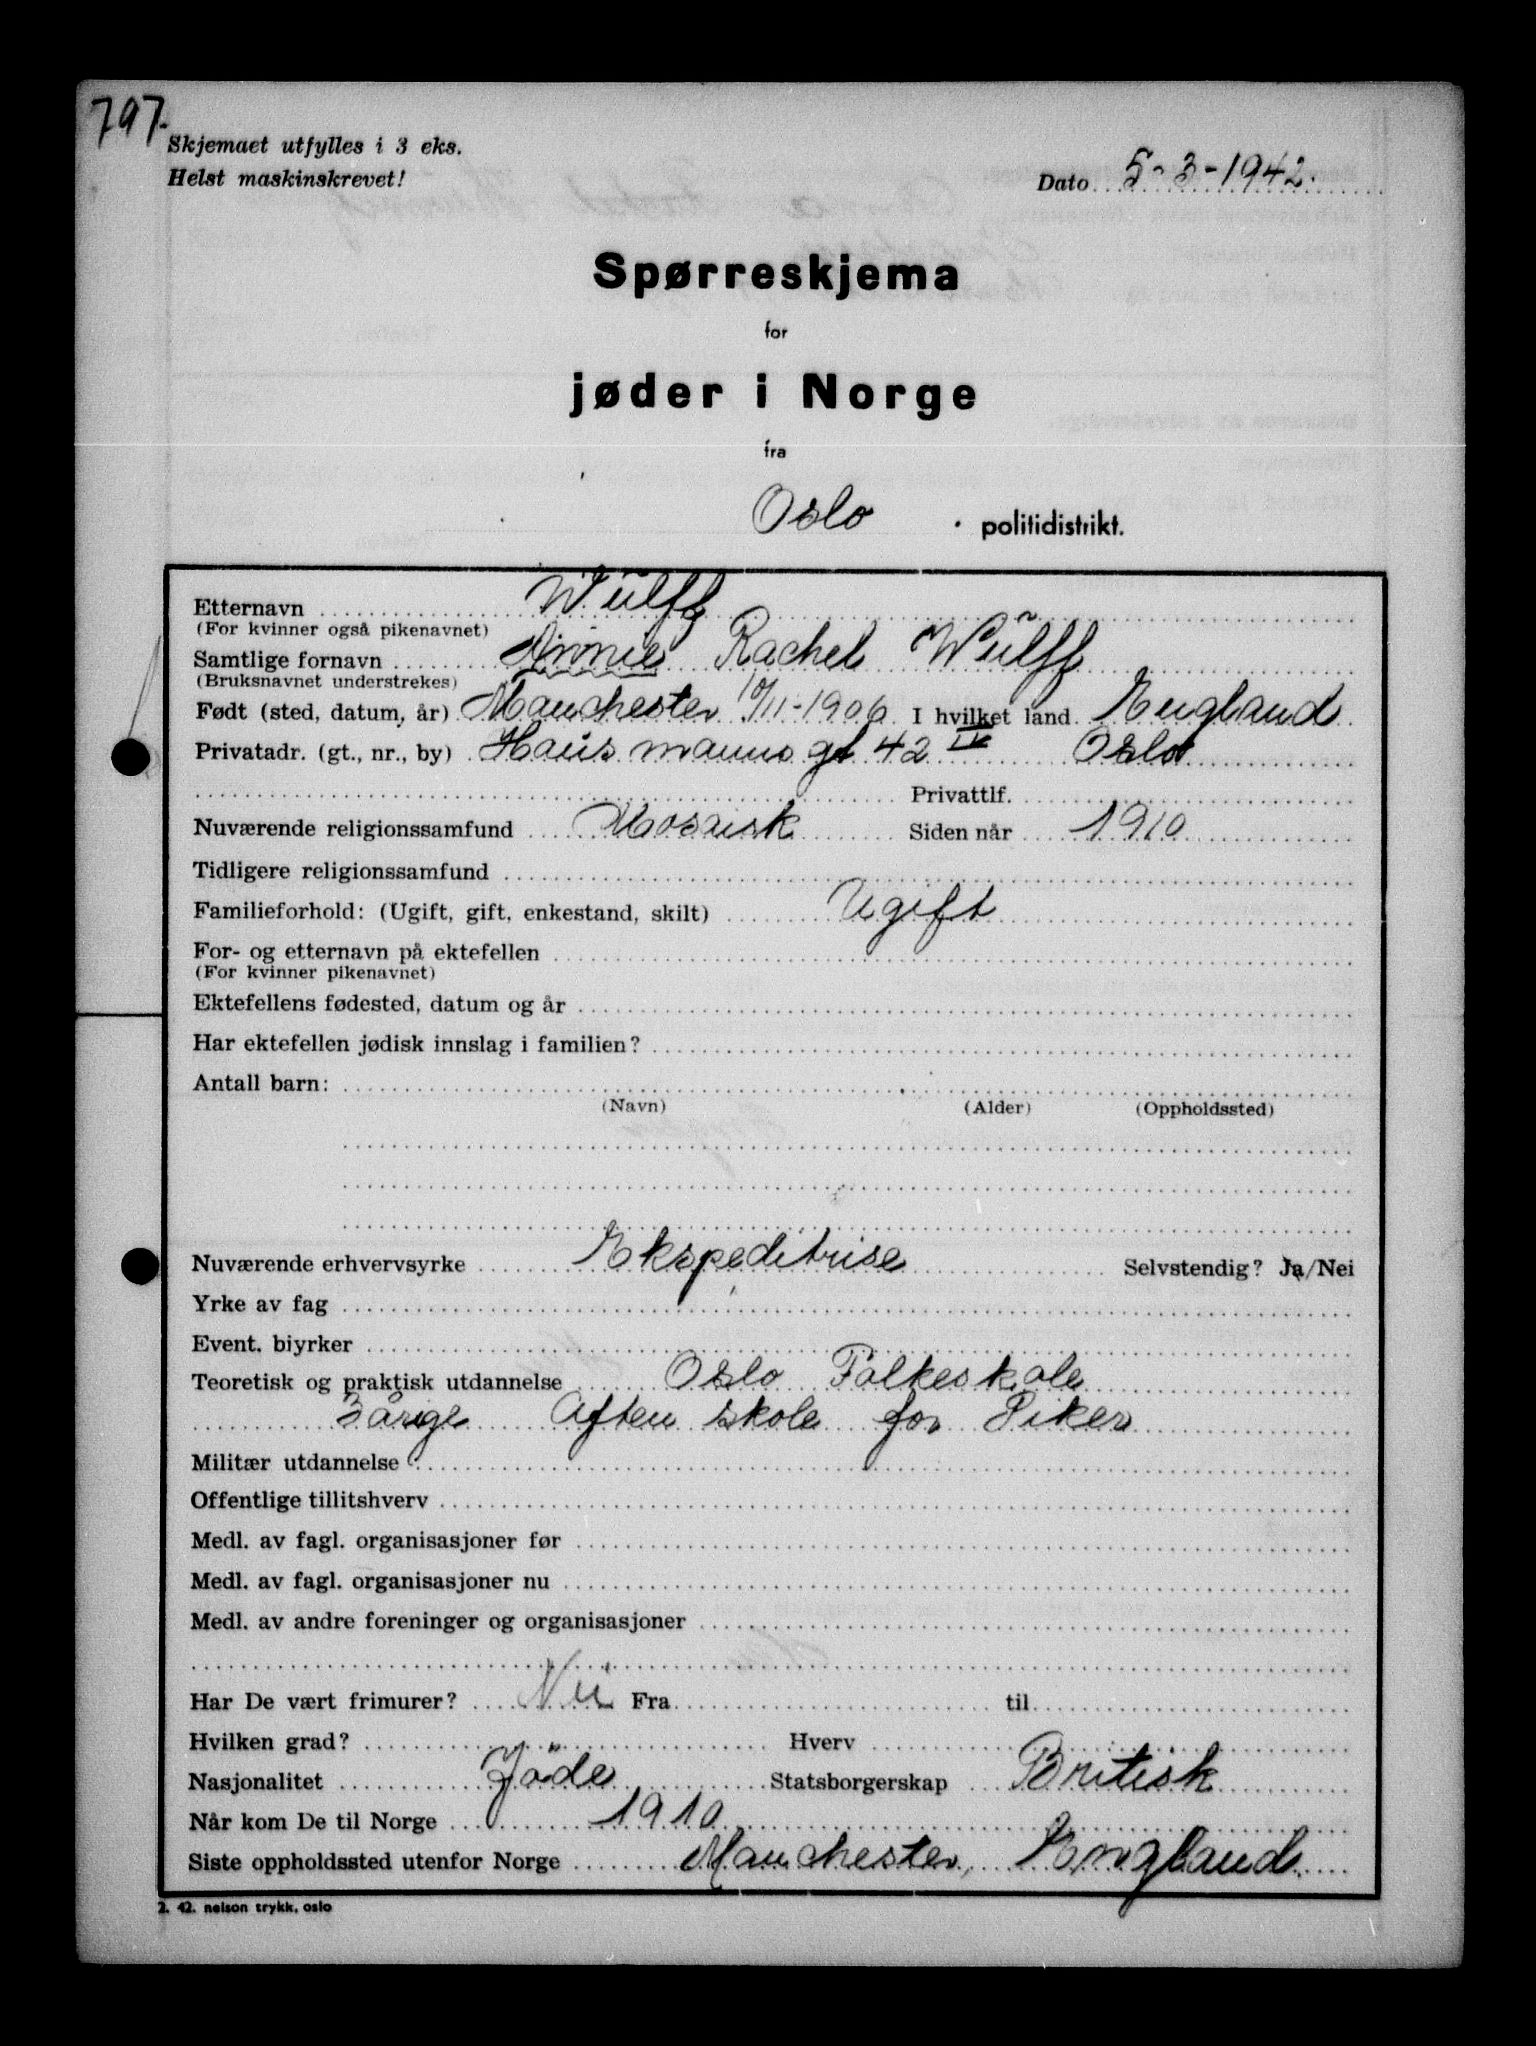 797.
Skjemaet utfylles i 3 eks.
Helst maskinskrevet!
Dato 5-3-1942.
Spørreskjema
for
jøder i Norge
fra
Oslo politidistrikt.
Etternavn Wulff
(For kvinner også pikenavnet)
Samtlige fornavn Annie Rachel Wulff
(Bruksnavnet understrekes)
Født (sted, datum, år) Manchester 10/11-1906 I hvilket land England
Privatadr. (gt., nr., by) Hausmanns gt 42 IV Oslo
Privattlf.
Nuværende religionssamfund Mosaisk Siden når 1910
Tidligere religionssamfund
Familieforhold: (Ugift, gift, enkestand, skilt) Ugift
For- og etternavn på ektefellen
(For kvinner pikenavnet)
Ektefellens fødested, datum og år
Har ektefellen jødisk innslag i familien?
Antall barn:
(Navn) (Alder) (Oppholdssted)
Nuværende erhvervsyrke Ekspeditrise Selvstendig? Ja/Nei
Yrke av fag
Event. biyrker
Teoretisk og praktisk utdannelse Oslo Folkeskole
3 årige Aftenskole for Piker
Militær utdannelse
Offentlige tillitshverv
Medl. av fagl. organisasjoner før
Medl. av fagl. organisasjoner nu
Medl. av andre foreninger og organisasjoner
Har De vært frimurer? Nei Fra til
Hvilken grad? Hverv
Nasjonalitet Jöde Statsborgerskap Britisk
Når kom De til Norge 1910
Siste oppholdssted utenfor Norge Manchester, England
2. 42. nelson trykk, oslo